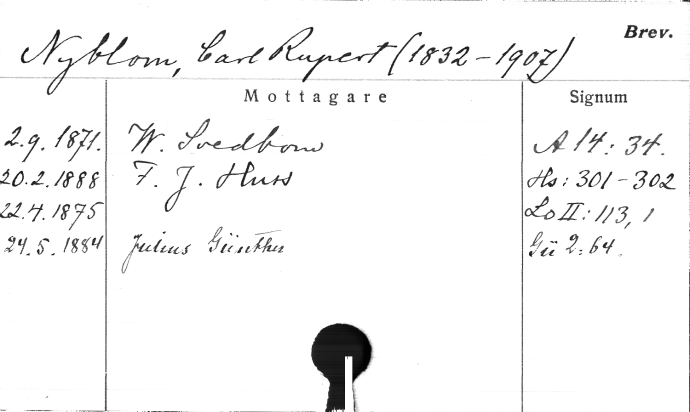 Brev.
Nyblom, Carl Rupert (1832-1907)
Mottagare Signum
2.9. 1871. W. Svedbom A 14: 34.
20.2. 1888 F. J. Huss Hs: 301-302
22.4. 1875 Lo II: 113, 1
24.5. 1884 Julius Günther Gü 2: 64.